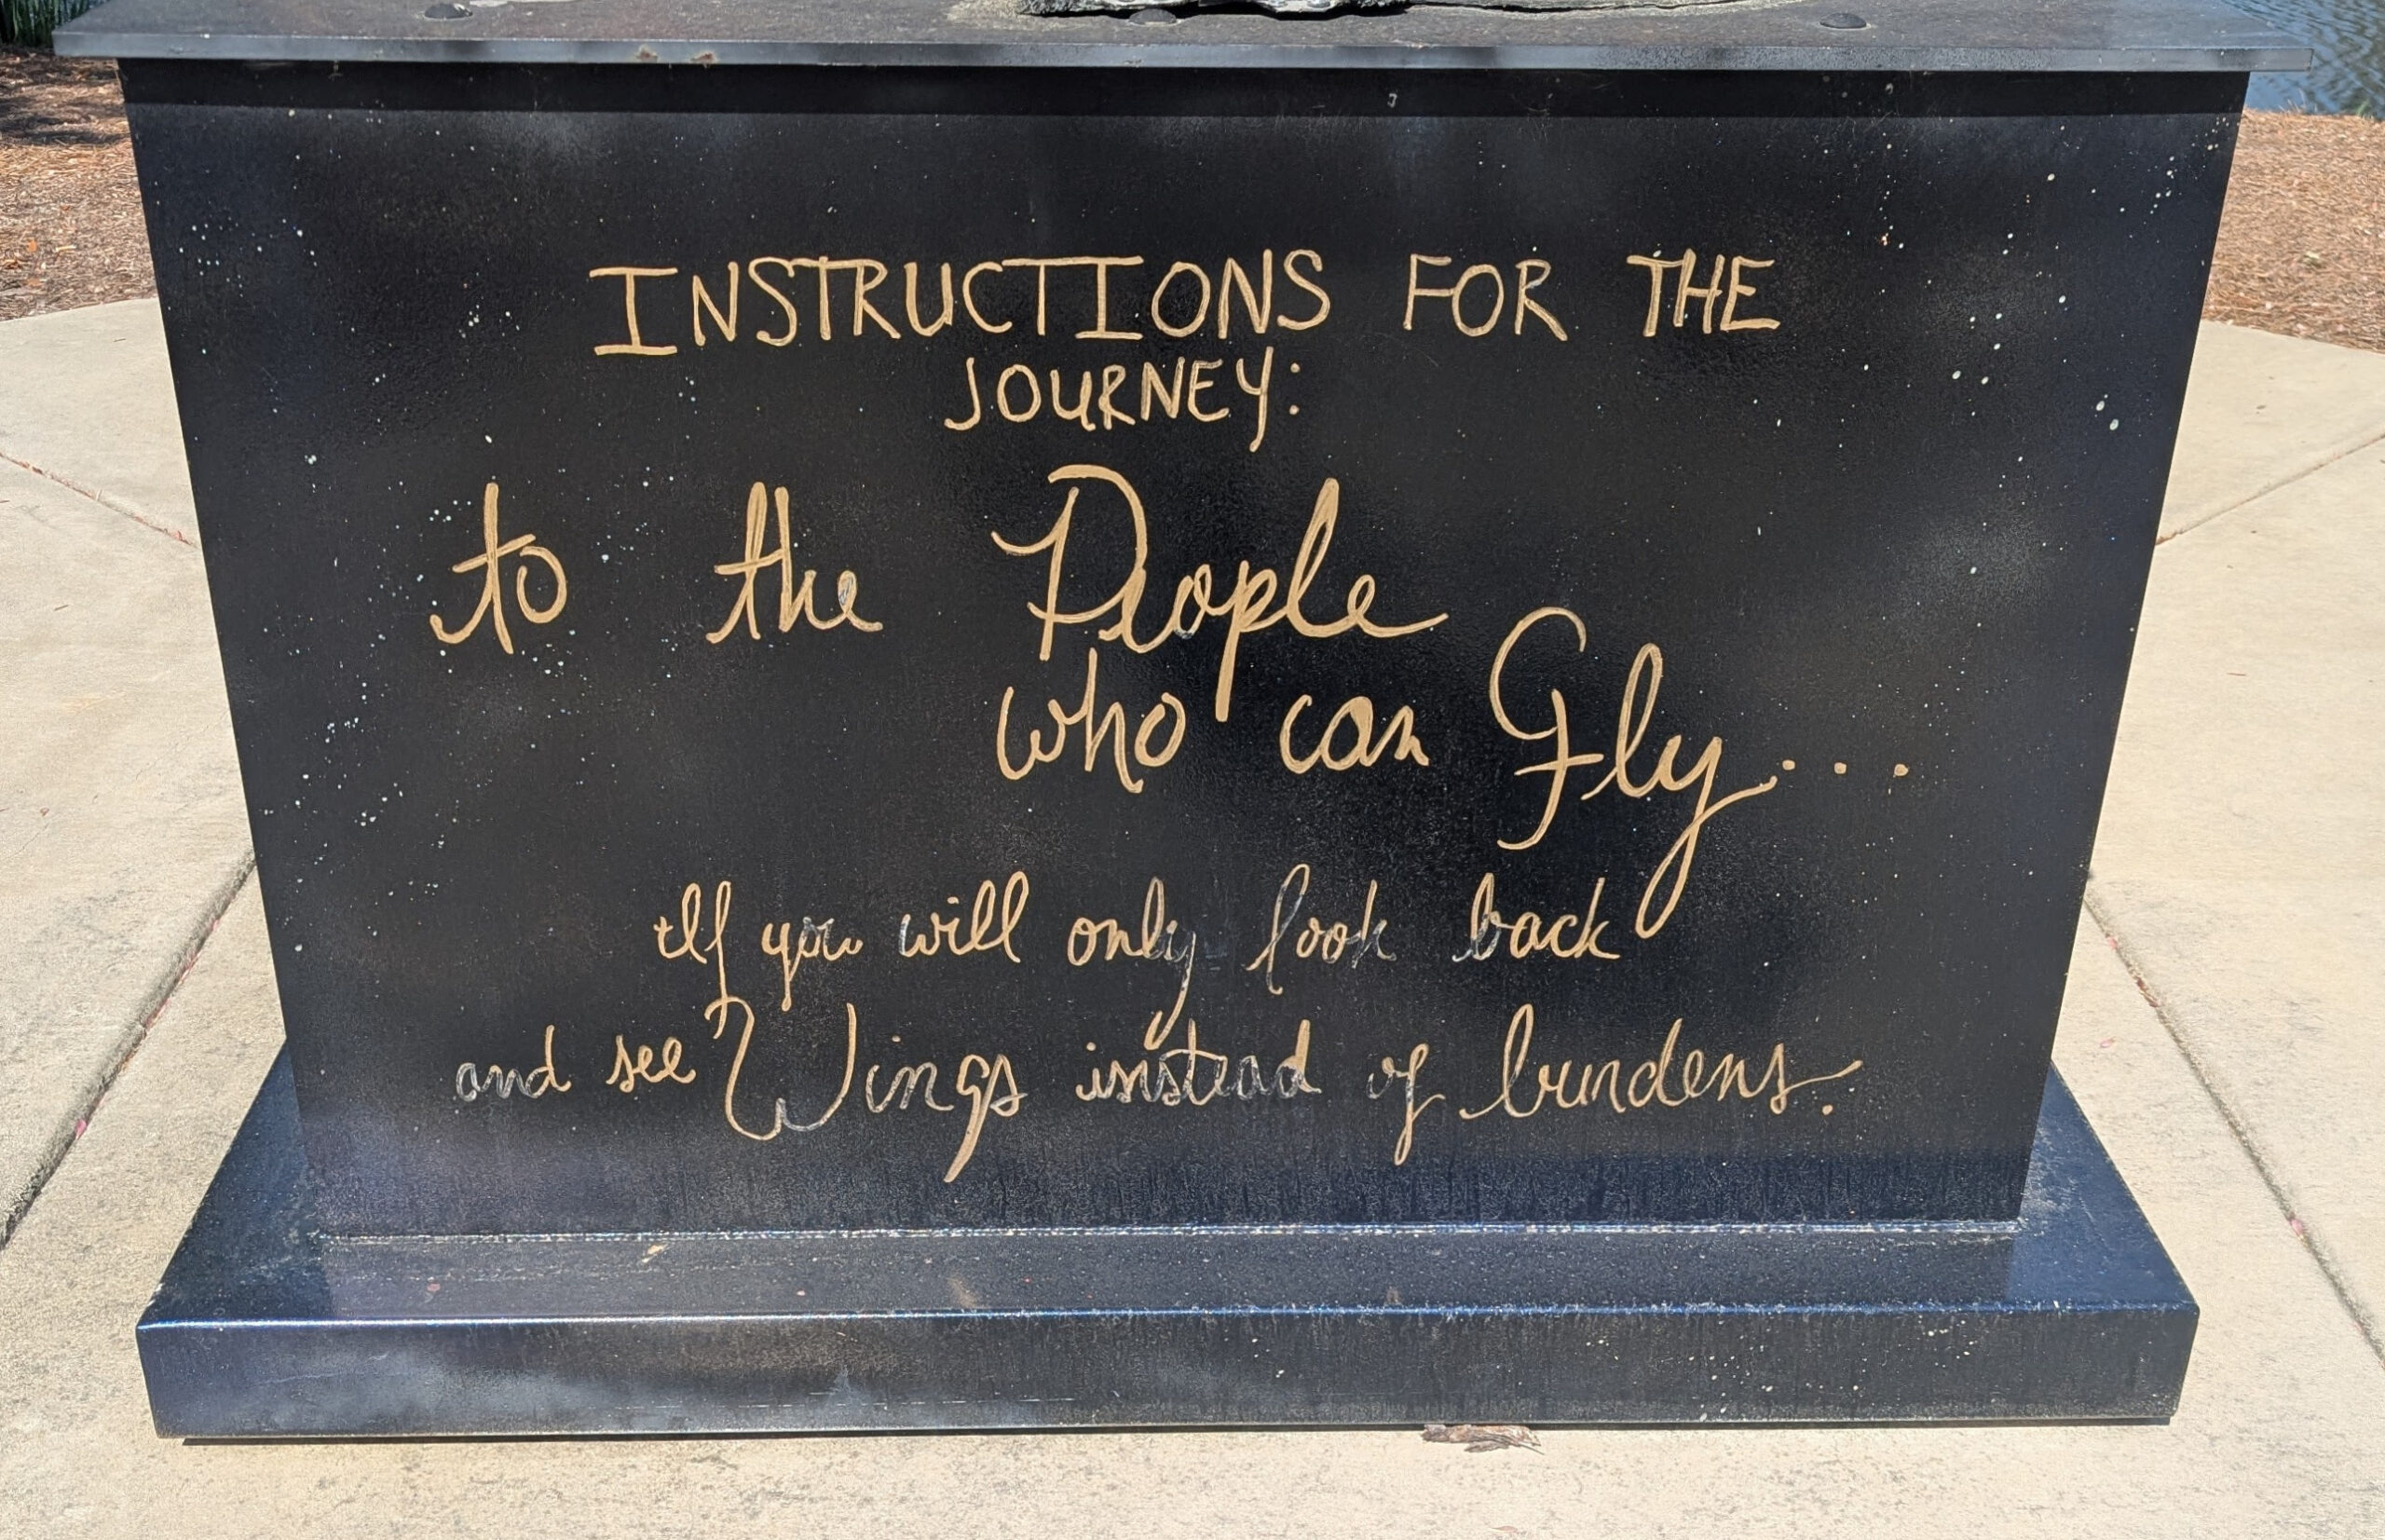 INSTRUCTIONS FOR THE
JOURNEY:
to the People
who can Fly...
If you will only look back
and see Wings instead of burdens.